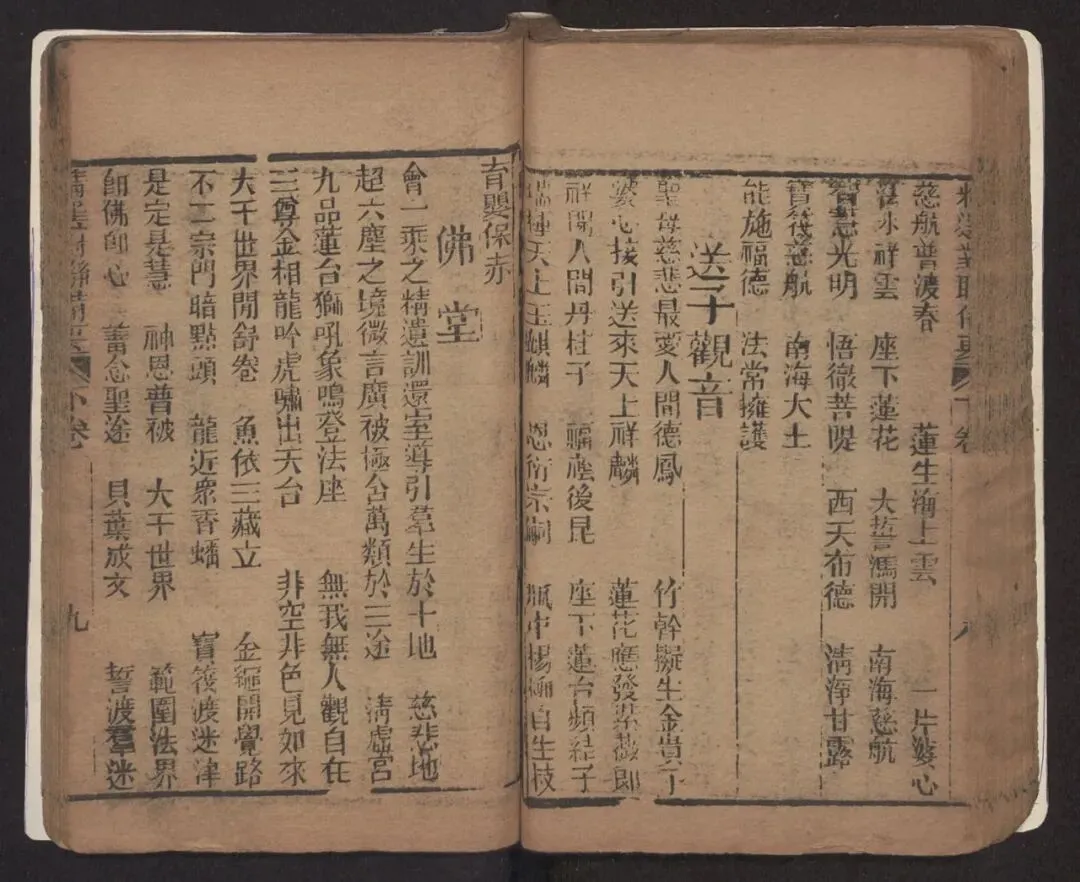 慈航普渡春　蓮生海上雲　一片婆心
祥雲　座下蓮花　大　開　南海慈航
智慧光明　悟徹菩提　西天布德　淸淨甘露
寶筏慈航　南海大士
能施福德　法常擁護
送子觀音
聖母慈悲最愛人間德鳳　竹幹擬生金貴子
婆心接引送來天上祥麟　蓮花應發紫薇郎
祥開人間丹桂子　福廕後昆　座下蓮台頻結子
瑞種天上玉麒麟　恩衍宗嗣　瓶中楊柳自生枝
育嬰保赤
佛堂
會一乘之精遺訓還室導引羣生於十地　慈悲地
超六塵之境微言廣被極含萬類於三途　淸虛宮
九品蓮台獅吼象鳴登法座　無我無人觀自在
三尊金相龍吟虎嘯出天台　非空非色見如來
大千世界開舒卷　魚依三藏立　金繩開覺路
不二宗門暗點頭　龍近衆香蟠　寶筏渡迷津
是定是慧　神恩普被　大千世界　範圍法界
卽佛卽心　蓄念聖途　貝葉成文　誓渡羣迷
卷　九